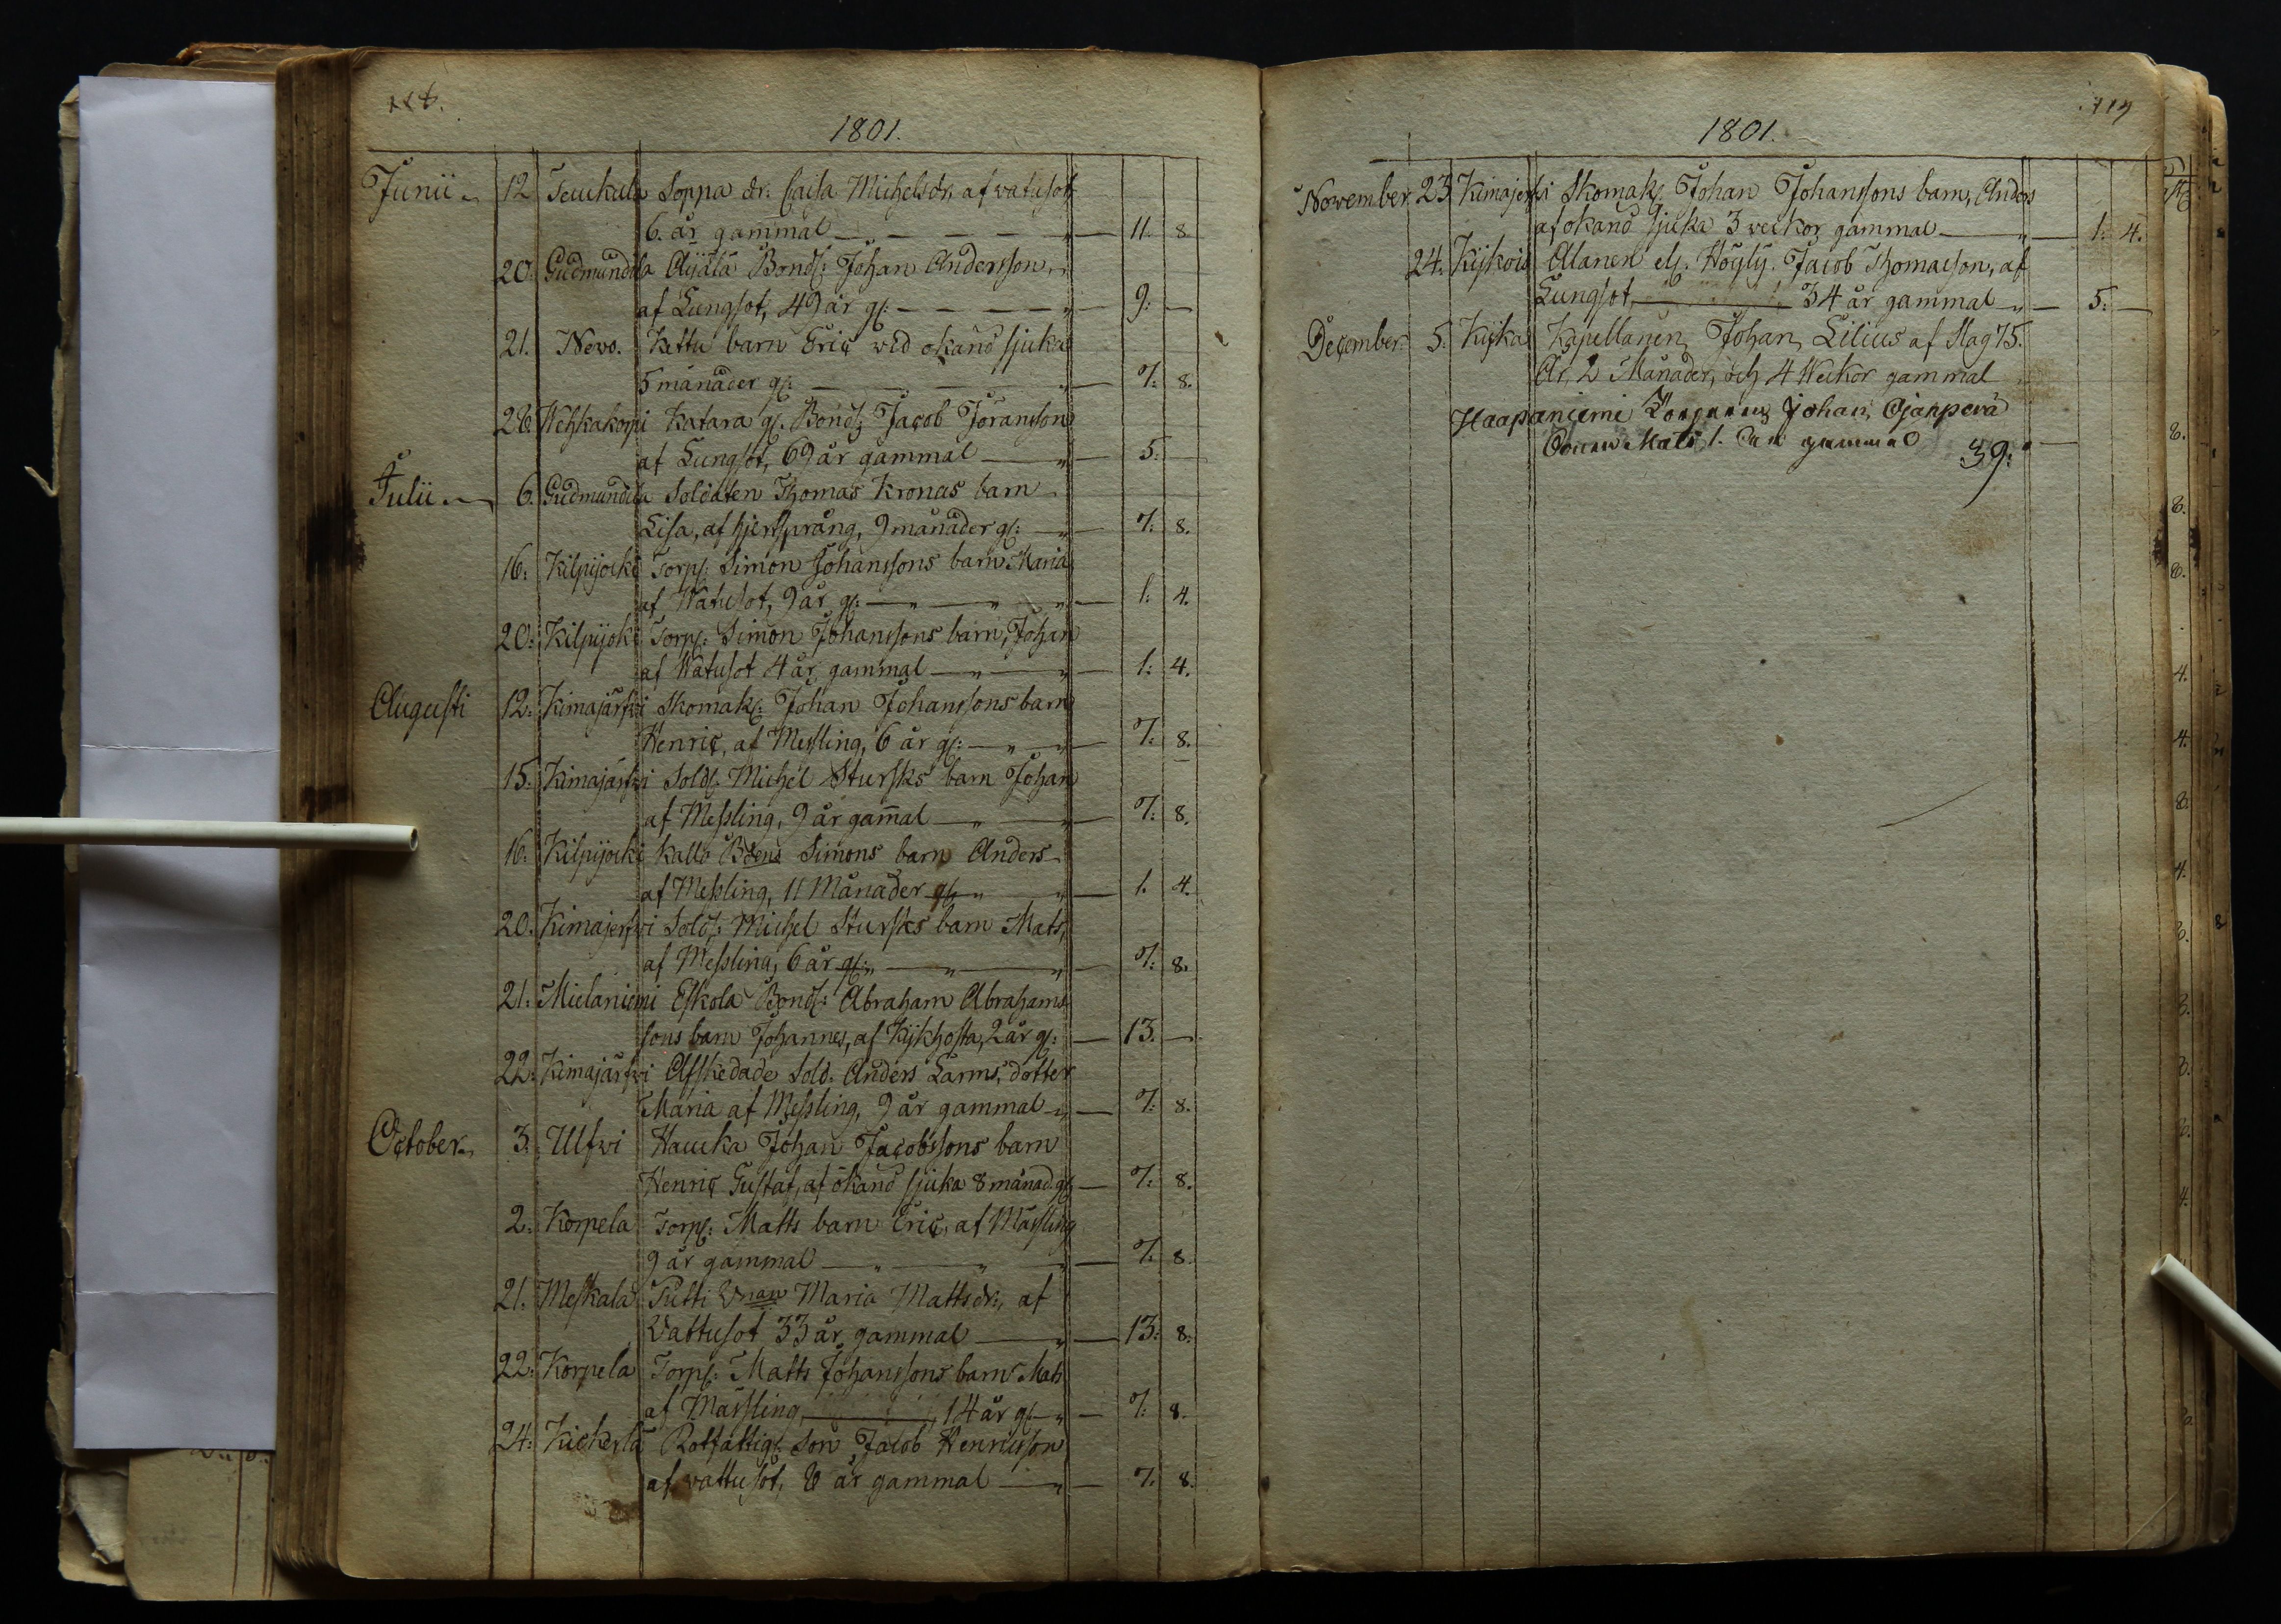 1801.
Junii 12 Teukula Soppa dr. Caisa Michelsdr. af vatusot
6. år gammal — 11. 8
20. Gudmundila Äijälä Bond: Johan Andersson,
af Lungsot, 49 år g: — 9: —
21. Nevo. Kettu barn Eric wid okänd sjuka
5 månader g: — ·/: 8.
28. Wehkakorpi Katara g. Bond: Jacob Joransson
af Lungsot, 69 år gammal — 5: —
Julii 6. Gudmundila Soldaten Thomas Kronas barn
Lisa, af hjertsprång, 9 månader g: — ·/: 8.
16: Kilpijocki Torp: Simon Johanssons barn Maria
af Watusot, 9 år g: — 1: 4.
20: Kilpijoki Torp: Simon Johanssons barn, Johan
af Watusot 4 år gammal — 1: 4.
Augusti 12. Kimajärfvi Skomak: Johan Johanssons barn
Henric, af Messling, 6 år g: — ·/: 8.
15. Kimajärfvi Sold: Michel Stursks barn Johan
af Messling, 9 år gam̄al — ·/: 8.
16. Kilpijocki Kallo Bdens Simons barn Anders
af Messling, 11 Månader g: — 1. 4.
20. Kimajerfvi Sold: Michel Stursks barn Mats,
af Messling, 6 år g: — ·/: 8.
21. Mielaniemi Eskola Bond: Abraham Abrahams
sons barn Johannes, af Kijkhosta, 2 år g: — 13. —
22: Kimajärfvi Afskedade Sold. Anders Larms, dotter
Maria af Messling, 9 år gammal — ·/: 8.
October 3. Ulfvi Haucka Johan Jacobssons barn
Henric Gustaf, af okänd sjuka 8 månad. g: — ·/: 8.
2. Korpela Torp: Matts barn Eric, af Mässling
9 år gammal — ·/: 8.
21. Meskala Putti Maria Mattsdr:, af
Vattusot 33 år gammal — 13: 8.
22: Korpela Torp: Matts Johanssons barn Mats
af Mässling, 14 år g: — ·/: 8.
24: Kickerla Rotfattig: Son Jacob Henricsson
af vattusot, 8 år gammal — ·/: 8.
119
1801.
November. 23. Kimajerfvi Skomak: Johan Johanssons barn, Anders
af okänd sjuka 3 veckor gammal — 1: 4.
24. Kijkois Alanen Jacob Thomasson, af
Lungsot, 34 år gammal — 5: —
December. 5. Kijka Kapellanen Johan Lilius af Slag 75.
År, 2 Månader, och 4 Weckor gammal
Haapaniemi Johan Ojanperä
gammal 39: